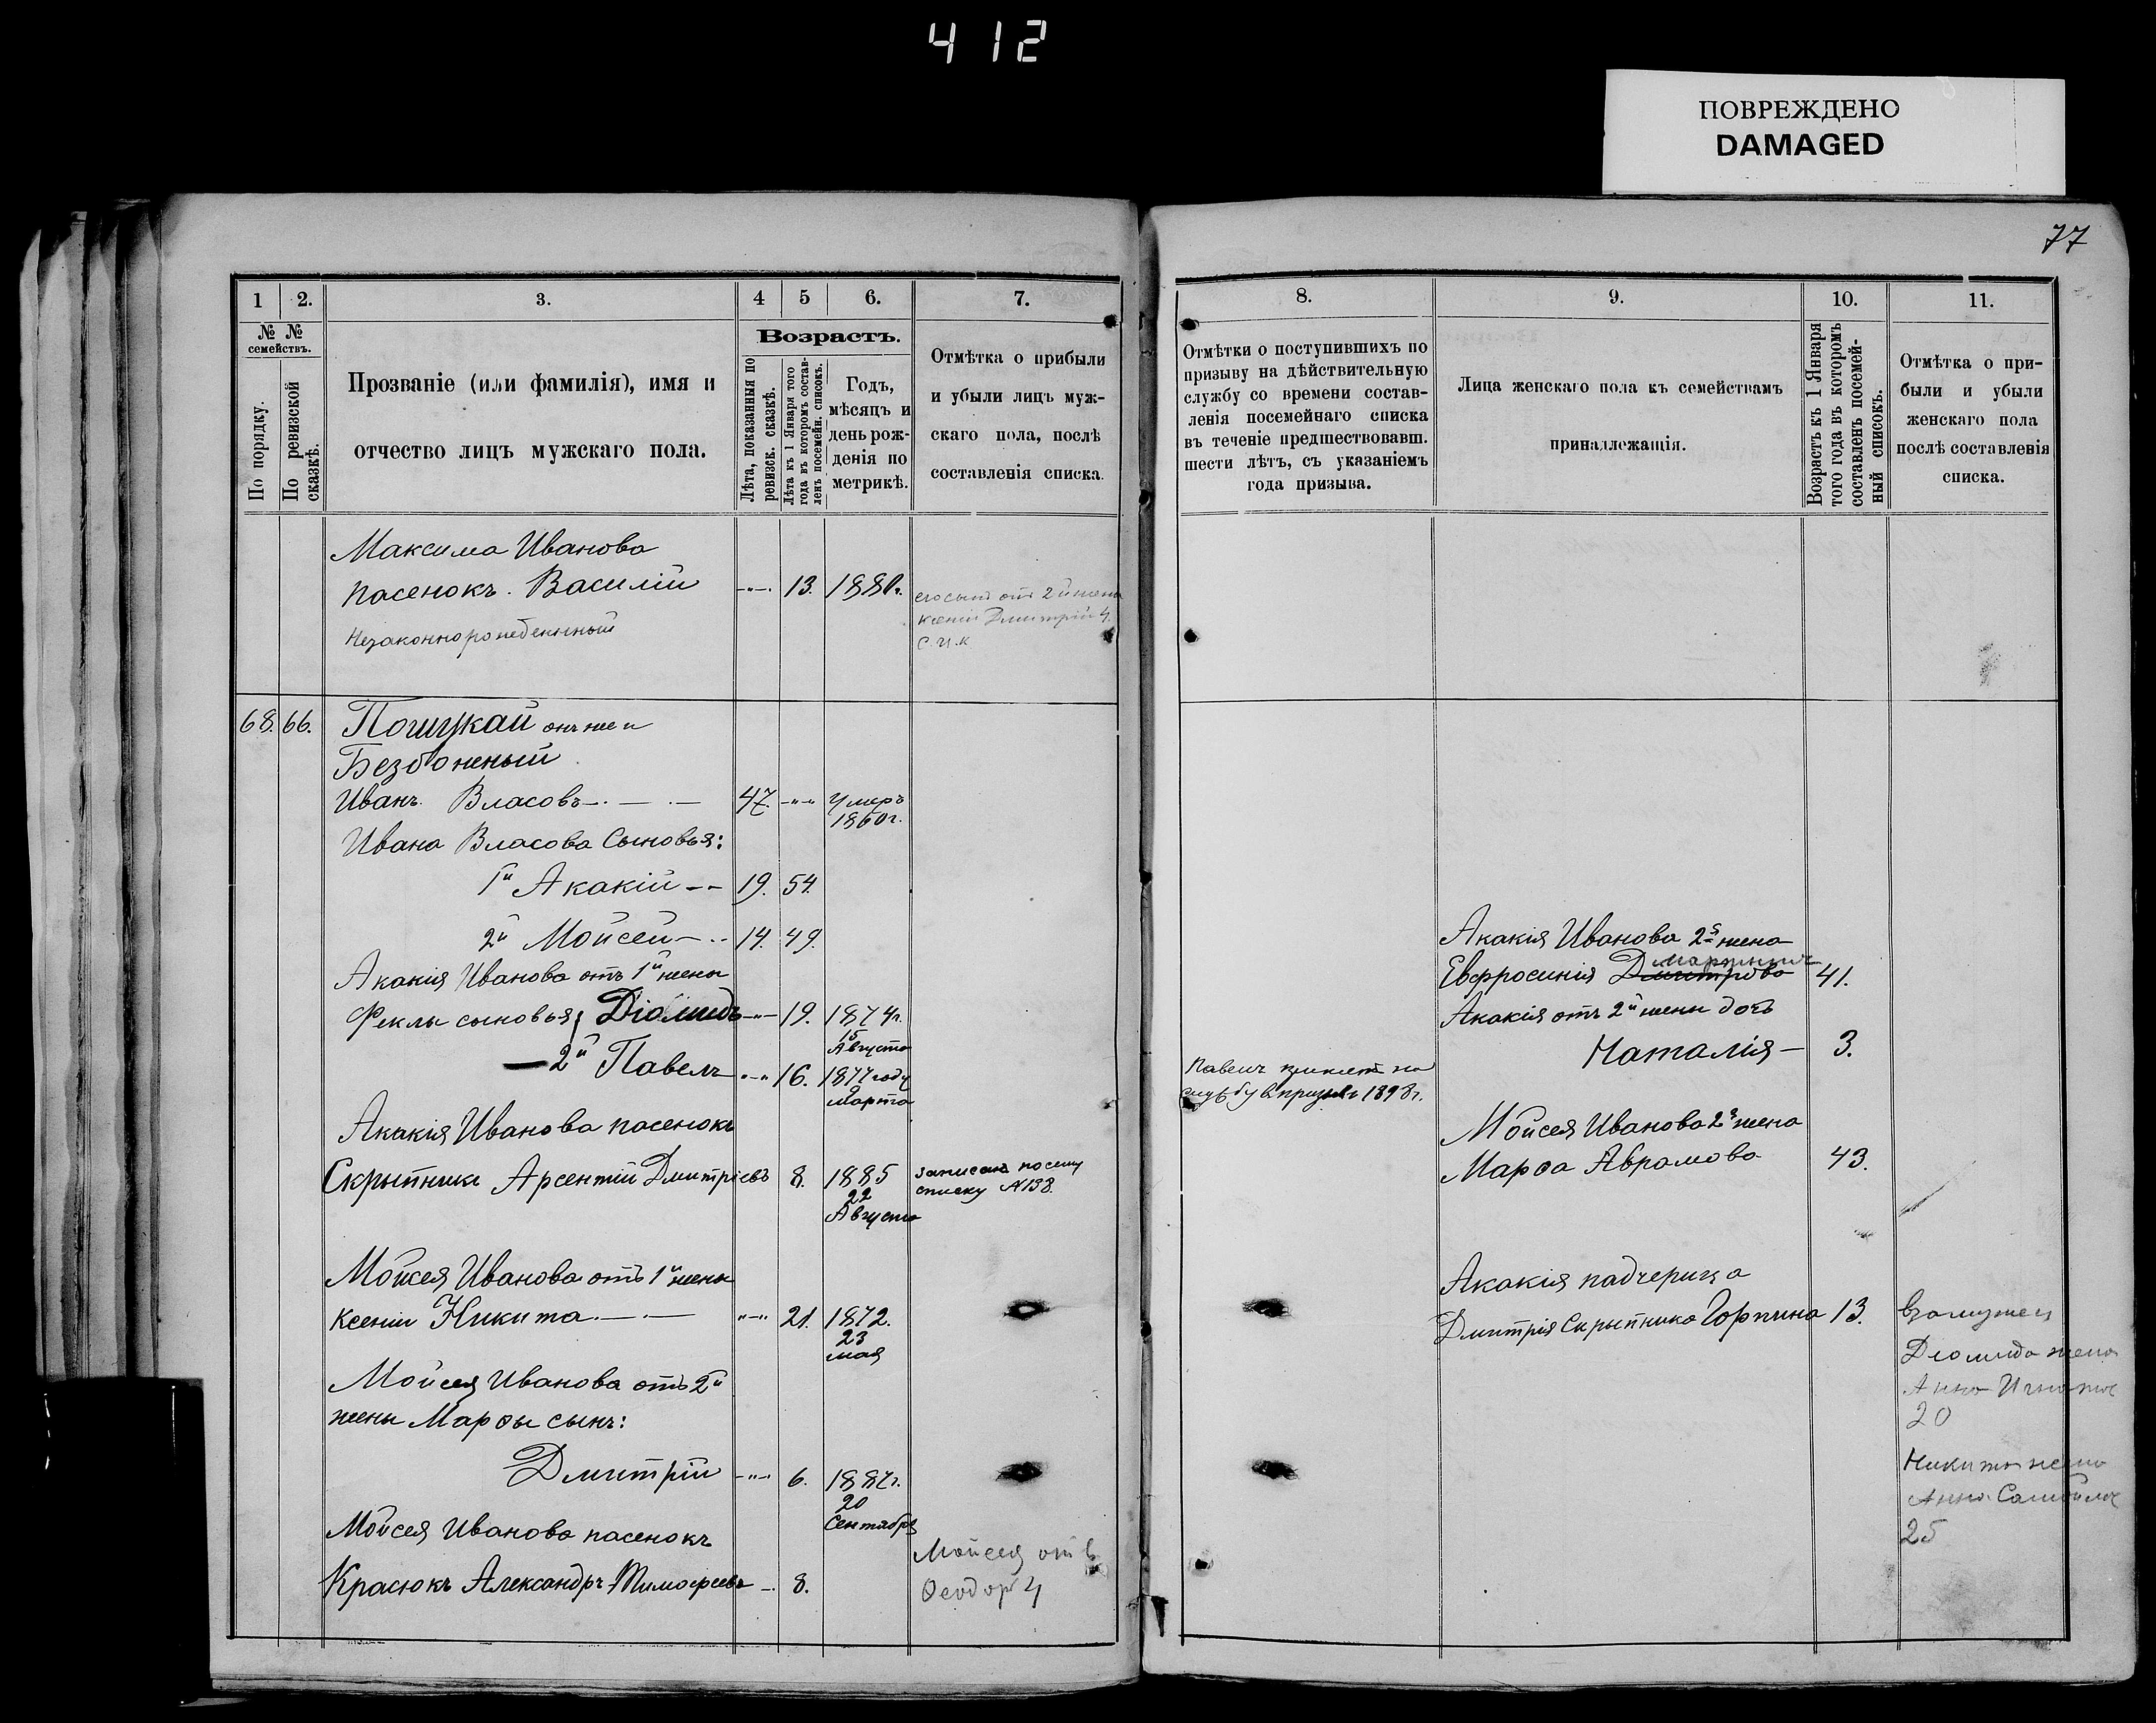 412
ПОВРЕЖДЕНО
DAMAGED
77
1
2.
3.
4
5
6.
7.
№ №
семействъ.
По порядку.
По ревизской
сказкѣ.
Прозваніе (или фамилія), имя и
отчество лицъ мужскаго пола.
Возрастъ.
Лѣта, показанныя по
ревизск. сказкѣ.
Лѣта къ 1 Января того
года въ которомъ состав-
ленъ посемейн. списокъ.
Годъ,
мѣсяцъ и
день рож-
денія по
метрикѣ.
Отмѣтка о прибыли
и убыли лицъ муж-
скаго пола, послѣ
составленія списка.
Максима Иванова
пасенокъ. Василій -"-. 13. 1880г.
Незаконнорожденный
его сынъ отъ 2й жены
Ксеніи Дмитрій 4.
68. 66.
онъ же и
Безбожный
Иванъ Власовъ 47. -"- Умеръ
1860г.
Ивана Власова Сыновья:
1й Акакій -- 19. 54.
2й Мойсей 14. 49.
Акакія Иванова отъ 1й жены
Феклы сыновья: Діомидъ -"- 19. 1874г.
Августа
— 2й Павелъ -"- 16. 1877 году
9
марта
Акакія Иванова пасенокъ
Скрыпникъ Арсентій Дмитріевъ 8. 1885
22
Августа
записанъ по сему
списку №138.
Мойсея Иванова отъ 1й жены
Ксеніи Никита. -"- 21. 1872.
23
мая
Мойсея Иванова отъ 2й
жены Марѳы сынъ:
Дмитрій -"- 6. 1887г.
20
Сентября
Мойсея Иванова пасенокъ
Красюкъ Александръ Тимофеевъ -. 8.
Мойсея отъ
Ѳеодоръ 4
8.
9.
10.
11.
Отмѣтки о поступившихъ по
призыву на дѣйствительную
службу со времени состав-
ленія посемейнаго списка
въ теченіе предшествовавш.
шести лѣтъ, съ указаніемъ
года призыва.
Лица женскаго пола къ семействамъ
принадлежащія.
Возрастъ къ 1 Января
того года въ которомъ
составленъ посемей-
ный списокъ.
Отмѣтка о при-
были и убыли
женскаго пола
послѣ составленія
списка.
Акакія Иванова 2я жена
Евфросинія Дмитрова 41.
Акакія отъ 2й жены дочь
Наталія — 3.
Павелъ принятъ на
службу въ призывъ 1898г.
Мойсея Иванова 2я жена
Марѳа Аврамова 43.
Акакія падчерица
Дмитрія Скрыпника Горпина 13.
Діомида жена
Анна
20
Никиты жена
Анна
25